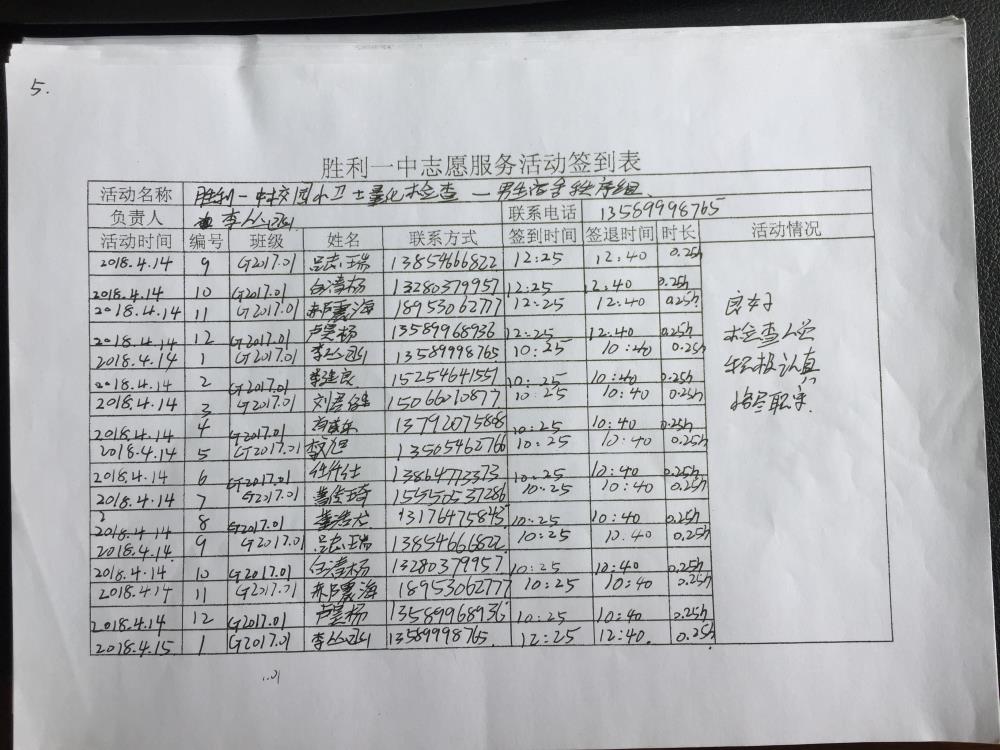 5.
胜利一中志愿服务活动签到表
活动名称 胜利一中校园小卫士量化检查—男生宿舍秩序组
负责人 李丛 联系电话 13589998765
活动时间 编号 班级 姓名 联系方式 签到时间 签退时间 时长 活动情况
2018.4.14 9 G2017.01 吕志瑞 13854666822 12:25 12:40 0.25h
2018.4.14 10 G2017.01 白清杨 13280379957 12:25 12:40 0.25h
2018.4.14 11 G2017.01 郝震海 18953062777 12:25 12:40 0.25h
2018.4.14 12 G2017.01 卢昊杨 13589968936 12:25 12:40 0.25h
2018.4.14 1 G2017.01 李丛 13589998765 10:25 10:40 0.25h
2018.4.14 2 G2017.01 李建良 15254641551 10:25 10:40 0.25h
2018.4.14 3 G2017.01 刘 15066010877 10:25 10:40 0.25h
2018.4.14 4 G2017.01 13792075808 10:25 10:40 0.25h
2018.4.14 5 G2017.01 旭 13505462766 10:25 10:40 0.25h
2018.4.14 6 G2017.01 任什仕 13864773373 10:25 10:40 0.25h
2018.4.14 7 G2017.01 15550537286 10:25 10:40 0.25h
2018.4.14 8 G2017.01 13176475845 10:25 10:40 0.25h
2018.4.14 9 G2017.01 吕志瑞 13854666822 10:25 10:40 0.25h
2018.4.14 10 G2017.01 白清杨 13280379957 10:25 10:40 0.25h
2018.4.14 11 G2017.01 郝震海 18953062777 10:25 10:40 0.25h
2018.4.14 12 G2017.01 卢昊杨 13589968936 10:25 10:40 0.25h
2018.4.15 1 G2017.01 李丛 13589998765 12:25 12:40 0.25h
良好
检查人员
积极认真
恪尽职守